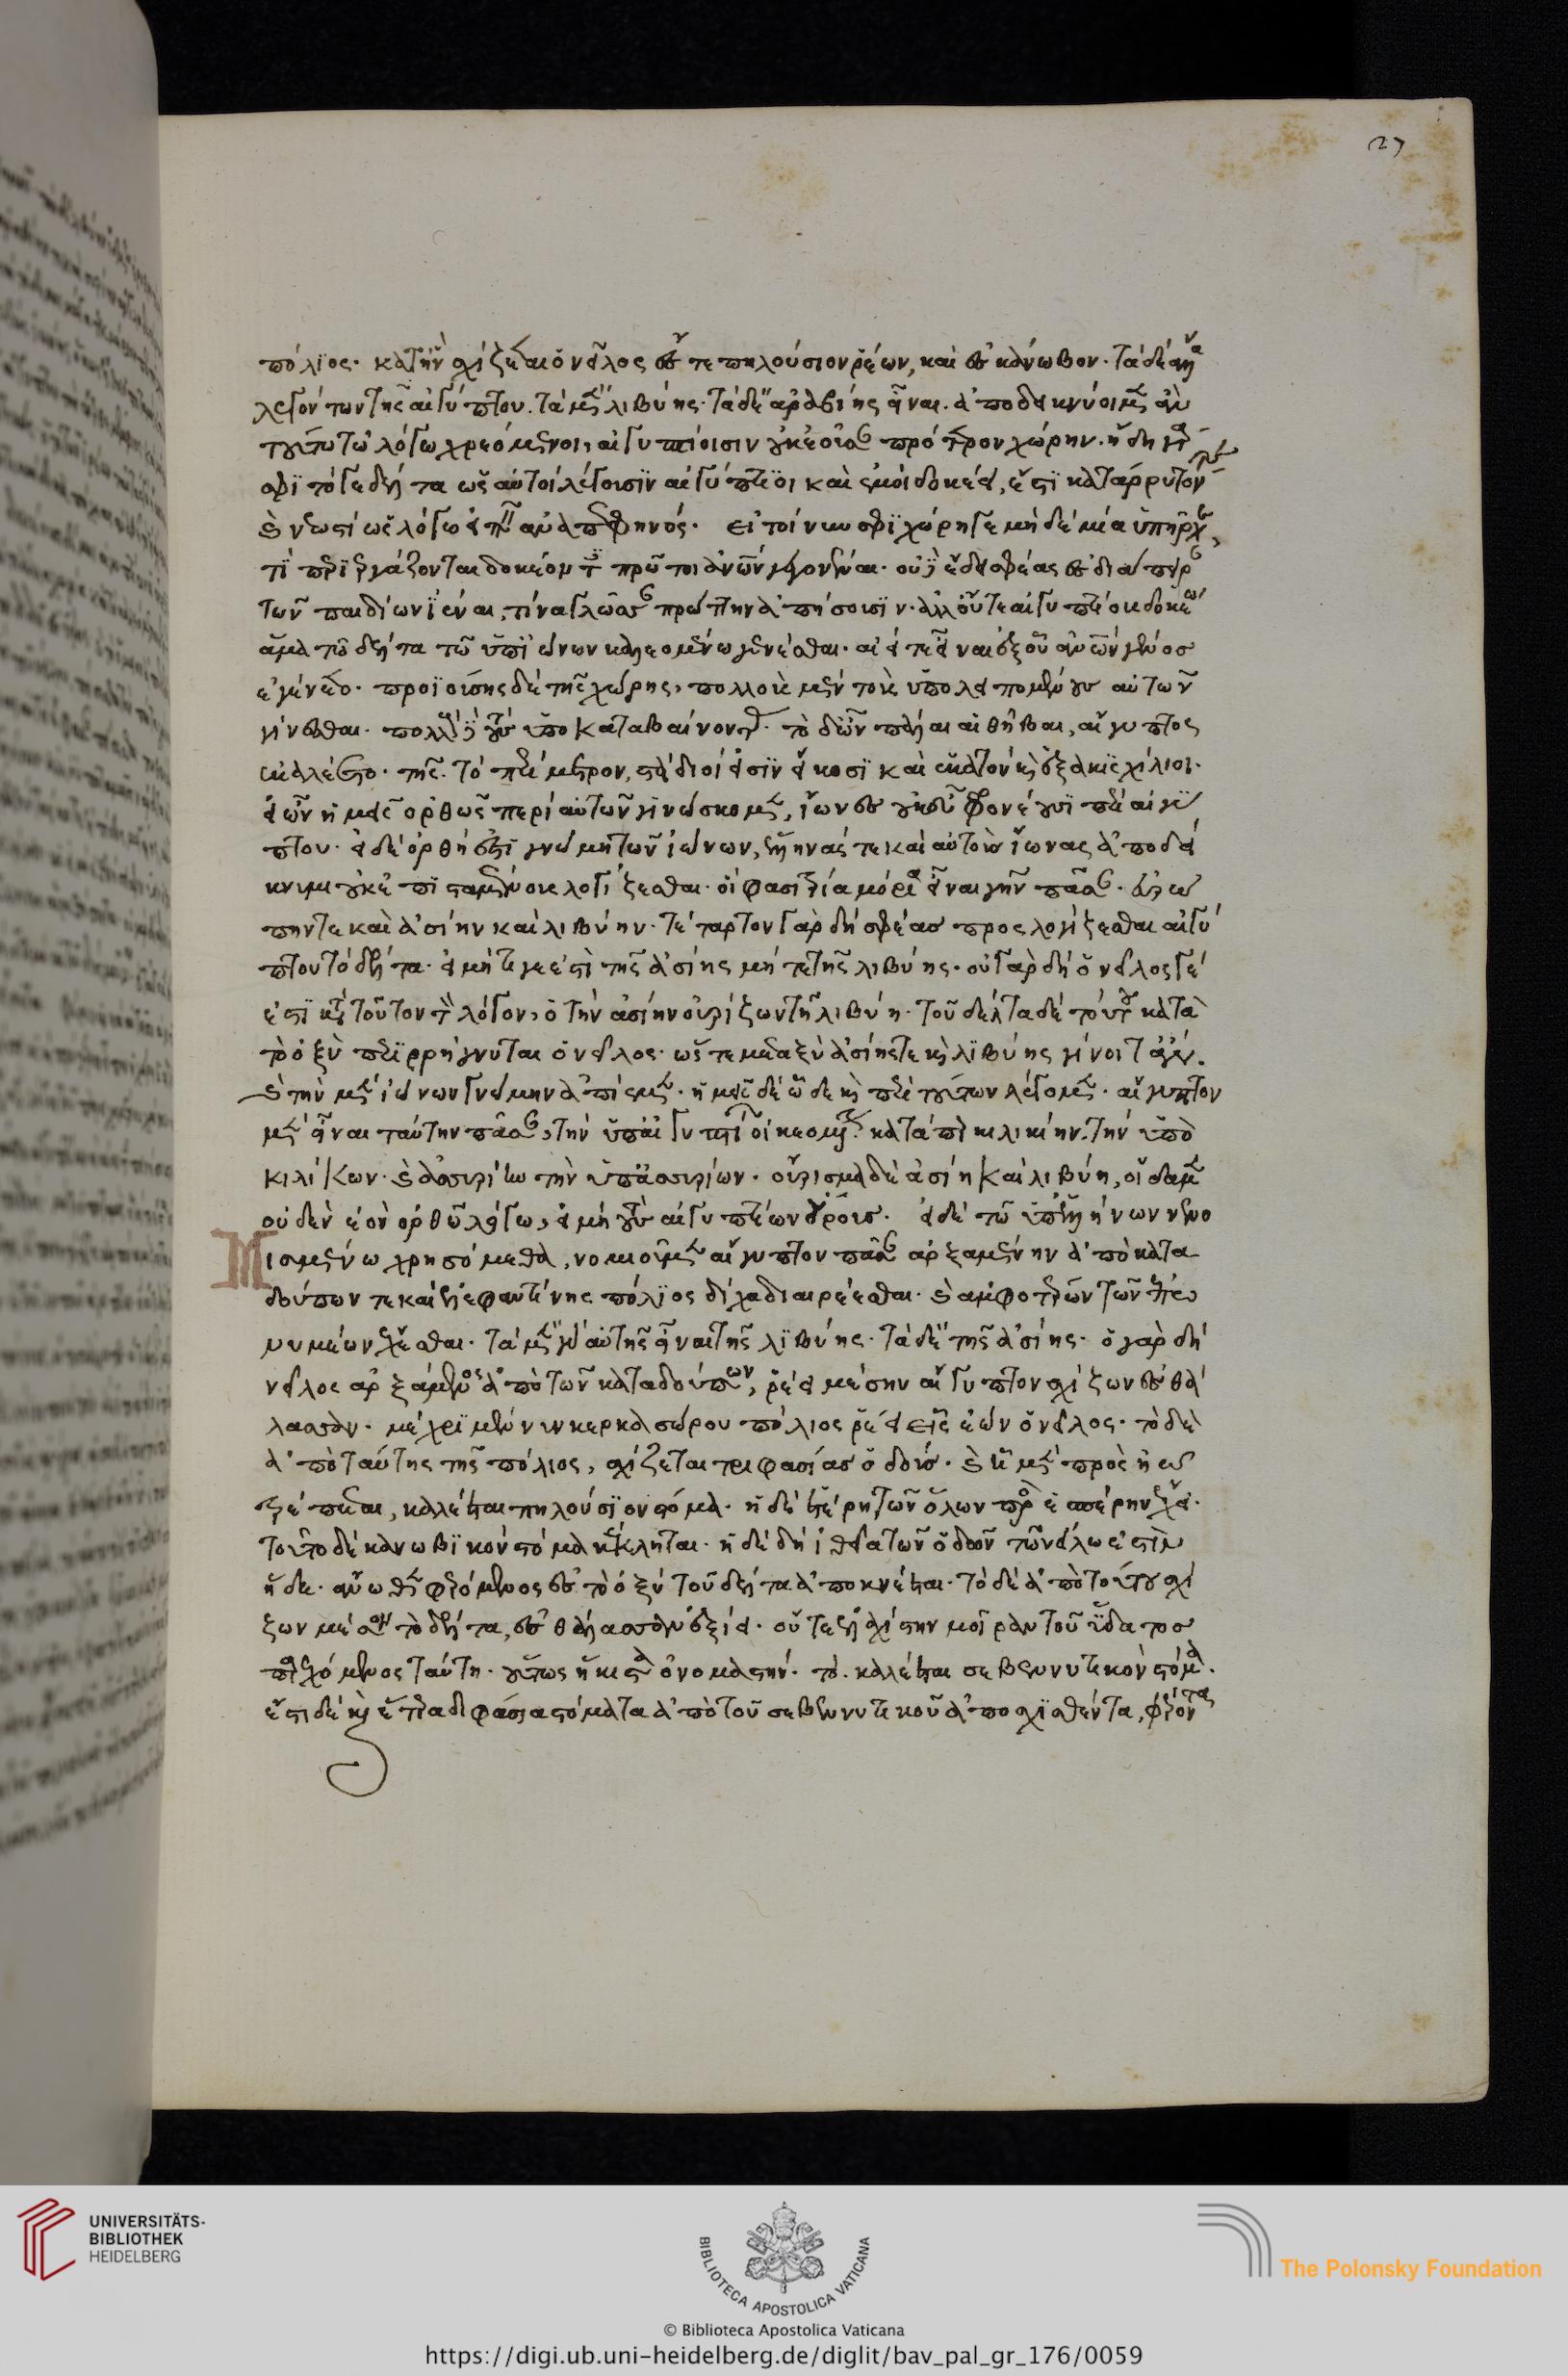 27
πόλιος· κατ' ἣν σχίζεται ὁ νεῖλος ἔς τε πηλούσιον ῥέων, καὶ ἐς κάνωβον· τὰ δὲ ἄλλα
λεγόντων τῆς αἰγύπτου. τὰ μὲν λιβύης· τὰ δὲ ἀραβίης εἶναι. ἀποδεικνύοιμεν ἂν
τούτῳ τῷ λόγῳ χρεόμενοι, αἰγυπτίοισιν οὐκ ἐοῦσαν πρότερον χώρην. ἤδη γάρ
σφι τό γε δέλτα ὡς αὐτοὶ λέγουσιν αἰγύπτιοι καὶ ἐμοὶ δοκέει, ἐστὶ κατάρρυτόν τε
καὶ νεωστὶ ὡς λόγῳ εἰπεῖν ἀναπεφηνός. εἰ τοίνυν σφι χώρη γε μηδεμία ὑπῆρχεν,
τί περιεργάζονται δοκέοντες πρῶτοι ἀνθρώπων γεγονέναι· οὐδὲ ἔδει σφέας ἐς διάπειραν
τῶν παιδίων ἰέναι, τίνα γλῶσσαν πρώτην ἀπήσουσιν. ἀλλ' οὔτε αἰγυπτίους δοκέω
ἅμα τῷ δέλτα τῷ ὑπὶ ἰώνων καλεομένῳ γενέσθαι· αἰεί τε εἶναι ἐξ οὗ ἀνθρώπων γένος
ἐγένετο· προϊούσης δὲ τῆς χώρης, πολλοὺς μὲν τοὺς ὑπολειπομένους αὐτῶν
γίνεσθαι· πολλοὺς δὲ τοὺς ὑποκαταβαίνοντας· τὸ δ' ὦν πάλαι αἱ θῆβαι, αἴγυπτος
ἐκαλέετο· τῆς τὸ περίμετρον, στάδιοί εἰσιν εἴκοσι καὶ ἑκατὸν καὶ ἑξακισχίλιοι·
εἰ ὦν ἡμεῖς ὀρθῶς περὶ αὐτῶν γινώσκομεν, ἴωνες οὐκ εὖ φρονέουσι περὶ αἰγύ
πτου· εἰ δὲ ὀρθή ἐστι γνώμη τῶν ἰώνων, ἕλληνάς τε καὶ αὐτοὺς ἴωνας ἀποδεί
κνυμι οὐκ ἐπισταμένους λογίζεσθαι· οἵ φασι τρία μόρια εἶναι γῆν πᾶσαν· εὐρώ
πην τε καὶ ἀσίην καὶ λιβύην· τέταρτον γὰρ δή σφέας προσλογίζεσθαι αἰγύ
πτου τὸ δέλτα· εἰ μήτε γέ ἐστι τῆς ἀσίης μήτε τῆς λιβύης· οὐ γὰρ δὴ ὁ νεῖλός γέ
ἐστι κατὰ τοῦτον τὸν λόγον, ὁ τὴν ἀσίην οὐρίζων τῇ λιβύῃ· τοῦ δέλτα δὲ τούτου κατὰ
τὸ ὀξὺ περιρρήγνυται ὁ νεῖλος· ὥστε μεταξὺ ἀσίης τε καὶ λιβύης γίνοιτ' ἄν.
καὶ τὴν μὲν ἰώνων γνώμην ἀπίεμεν· ἡμεῖς δὲ ὧδε καὶ περὶ τούτων λέγομεν· αἴγυπτον
μὲν εἶναι ταύτην πᾶσαν, τὴν ὑπ' αἰγυπτίων οἰκεομένην· κατάπερ κιλικίην· τὴν ὑπὸ
κιλίκων· καὶ ἀσσυρίην τὴν ὑπὸ ἀσσυρίων· οὔρισμα δὲ ἀσίῃ καὶ λιβύῃ, οἴδαμεν
οὐδὲν ἐὸν ὀρθῷ λόγῳ, εἰ μὴ τοὺς αἰγυπτίων οὔρους. εἰ δὲ τῷ ὑπ' ἑλλήνων νενο
μισμένῳ χρησόμεθα, νομιοῦμεν αἴγυπτον πᾶσαν ἀρξαμένην ἀπὸ κατα
δούπων τε καὶ ἐλεφαντίνης πόλιος δίχα διαιρέεσθαι· καὶ ἀμφοτέρων τῶν ἐπω
νυμιέων ἔχεσθαι· τὰ μὲν γὰρ αὐτῆς εἶναι τῆς λιβύης· τὰ δὲ τῆς ἀσίης· ὁ γὰρ δὴ
νεῖλος ἀρξάμενος ἀπὸ τῶν καταδούπων, ῥέει μέσην αἴγυπτον σχίζων ἐς θά
λασσαν· μέχρι μέν νυν κερκασώρου πόλιος ῥέει εἷς ἐὼν ὁ νεῖλος· τὸ δὲ
ἀπὸ ταύτης τῆς πόλιος, σχίζεται τριφασίας ὁδούς· καὶ ἡ μὲν πρὸς ἠῶ
τρέπεται, καλέεται πηλούσιον στόμα· ἡ δὲ ἑτέρη τῶν ὅλων πρὸς ἑσπέρην ἔχει·
τοῦτο δὲ κανωβικὸν στόμα κέκληται· ἡ δὲ δὴ ἰθεῖα τῶν ὁδῶν τῷ νείλῳ ἐστὶν
ἥδε· ἄνωθεν φερόμενος ἐς τὸ ὀξὺ τοῦ δέλτα ἀποκνέεται· τὸ δὲ ἀπὸ τούτου σχί
ζων μέσον τὸ δέλτα, ἐς θάλασσαν ἐξίει· οὔτε ἐλαχίστην μοῖραν τοῦ ὕδατος
παρεχόμενος ταύτῃ· οὔτως ἥκιστα ὀνομαστήν· τὸ καλέεται σεβεννυτικὸν στόμα.
ἔστι δὲ καὶ ἕτερα διφάσια στόματα ἀπὸ τοῦ σεβεννυτικοῦ ἀποσχισθέντα, φέροντα
UNIVERSITÄTS-
BIBLIOTHEK
HEIDELBERG
BIBLIOTECA APOSTOLICA VATICANA
The Polonsky Foundation
© Biblioteca Apostolica Vaticana
https://digi.ub.uni-heidelberg.de/diglit/bav_pal_gr_176/0059